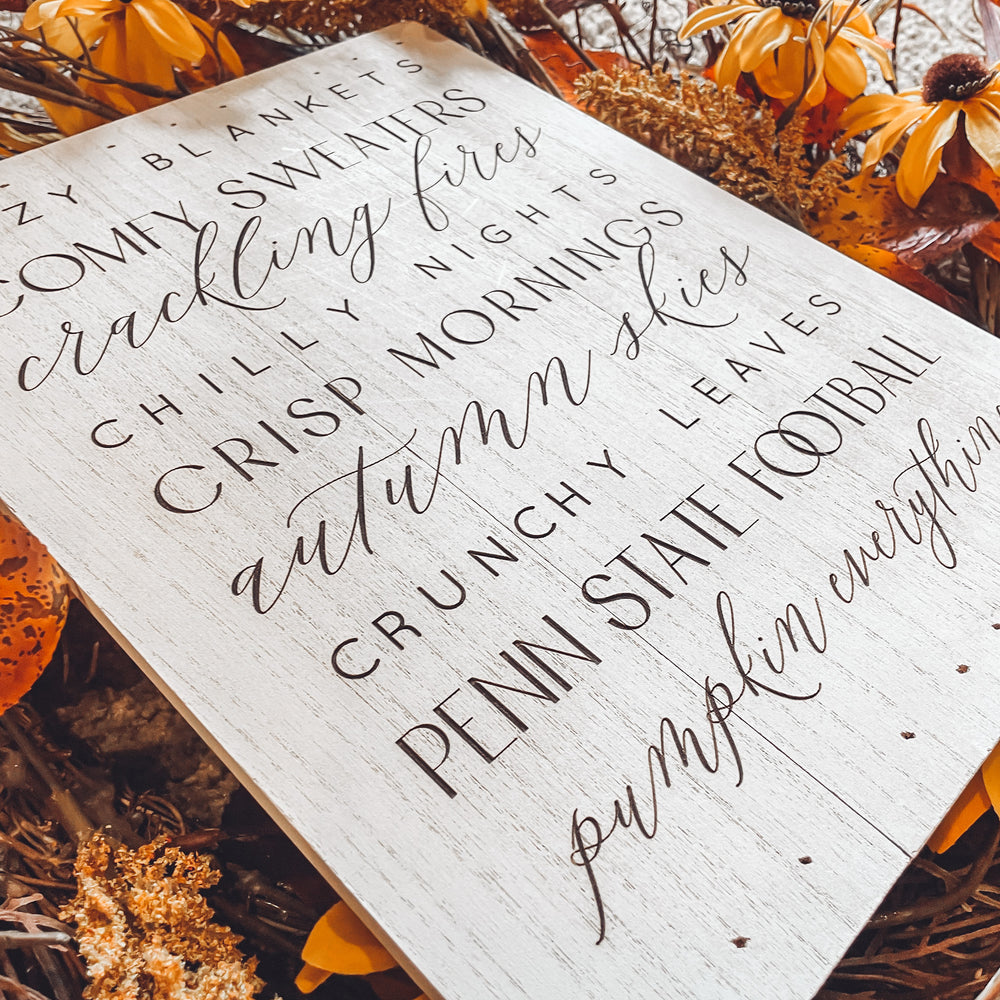 ZY BLANKETS
COMFY SWEATERS
crackling fires
CHILLY NIGHTS
CRISP MORNINGS
autumn skies
CRUNCHY LEAVES
PENN STATE FOOTBALL
pumpkin everything